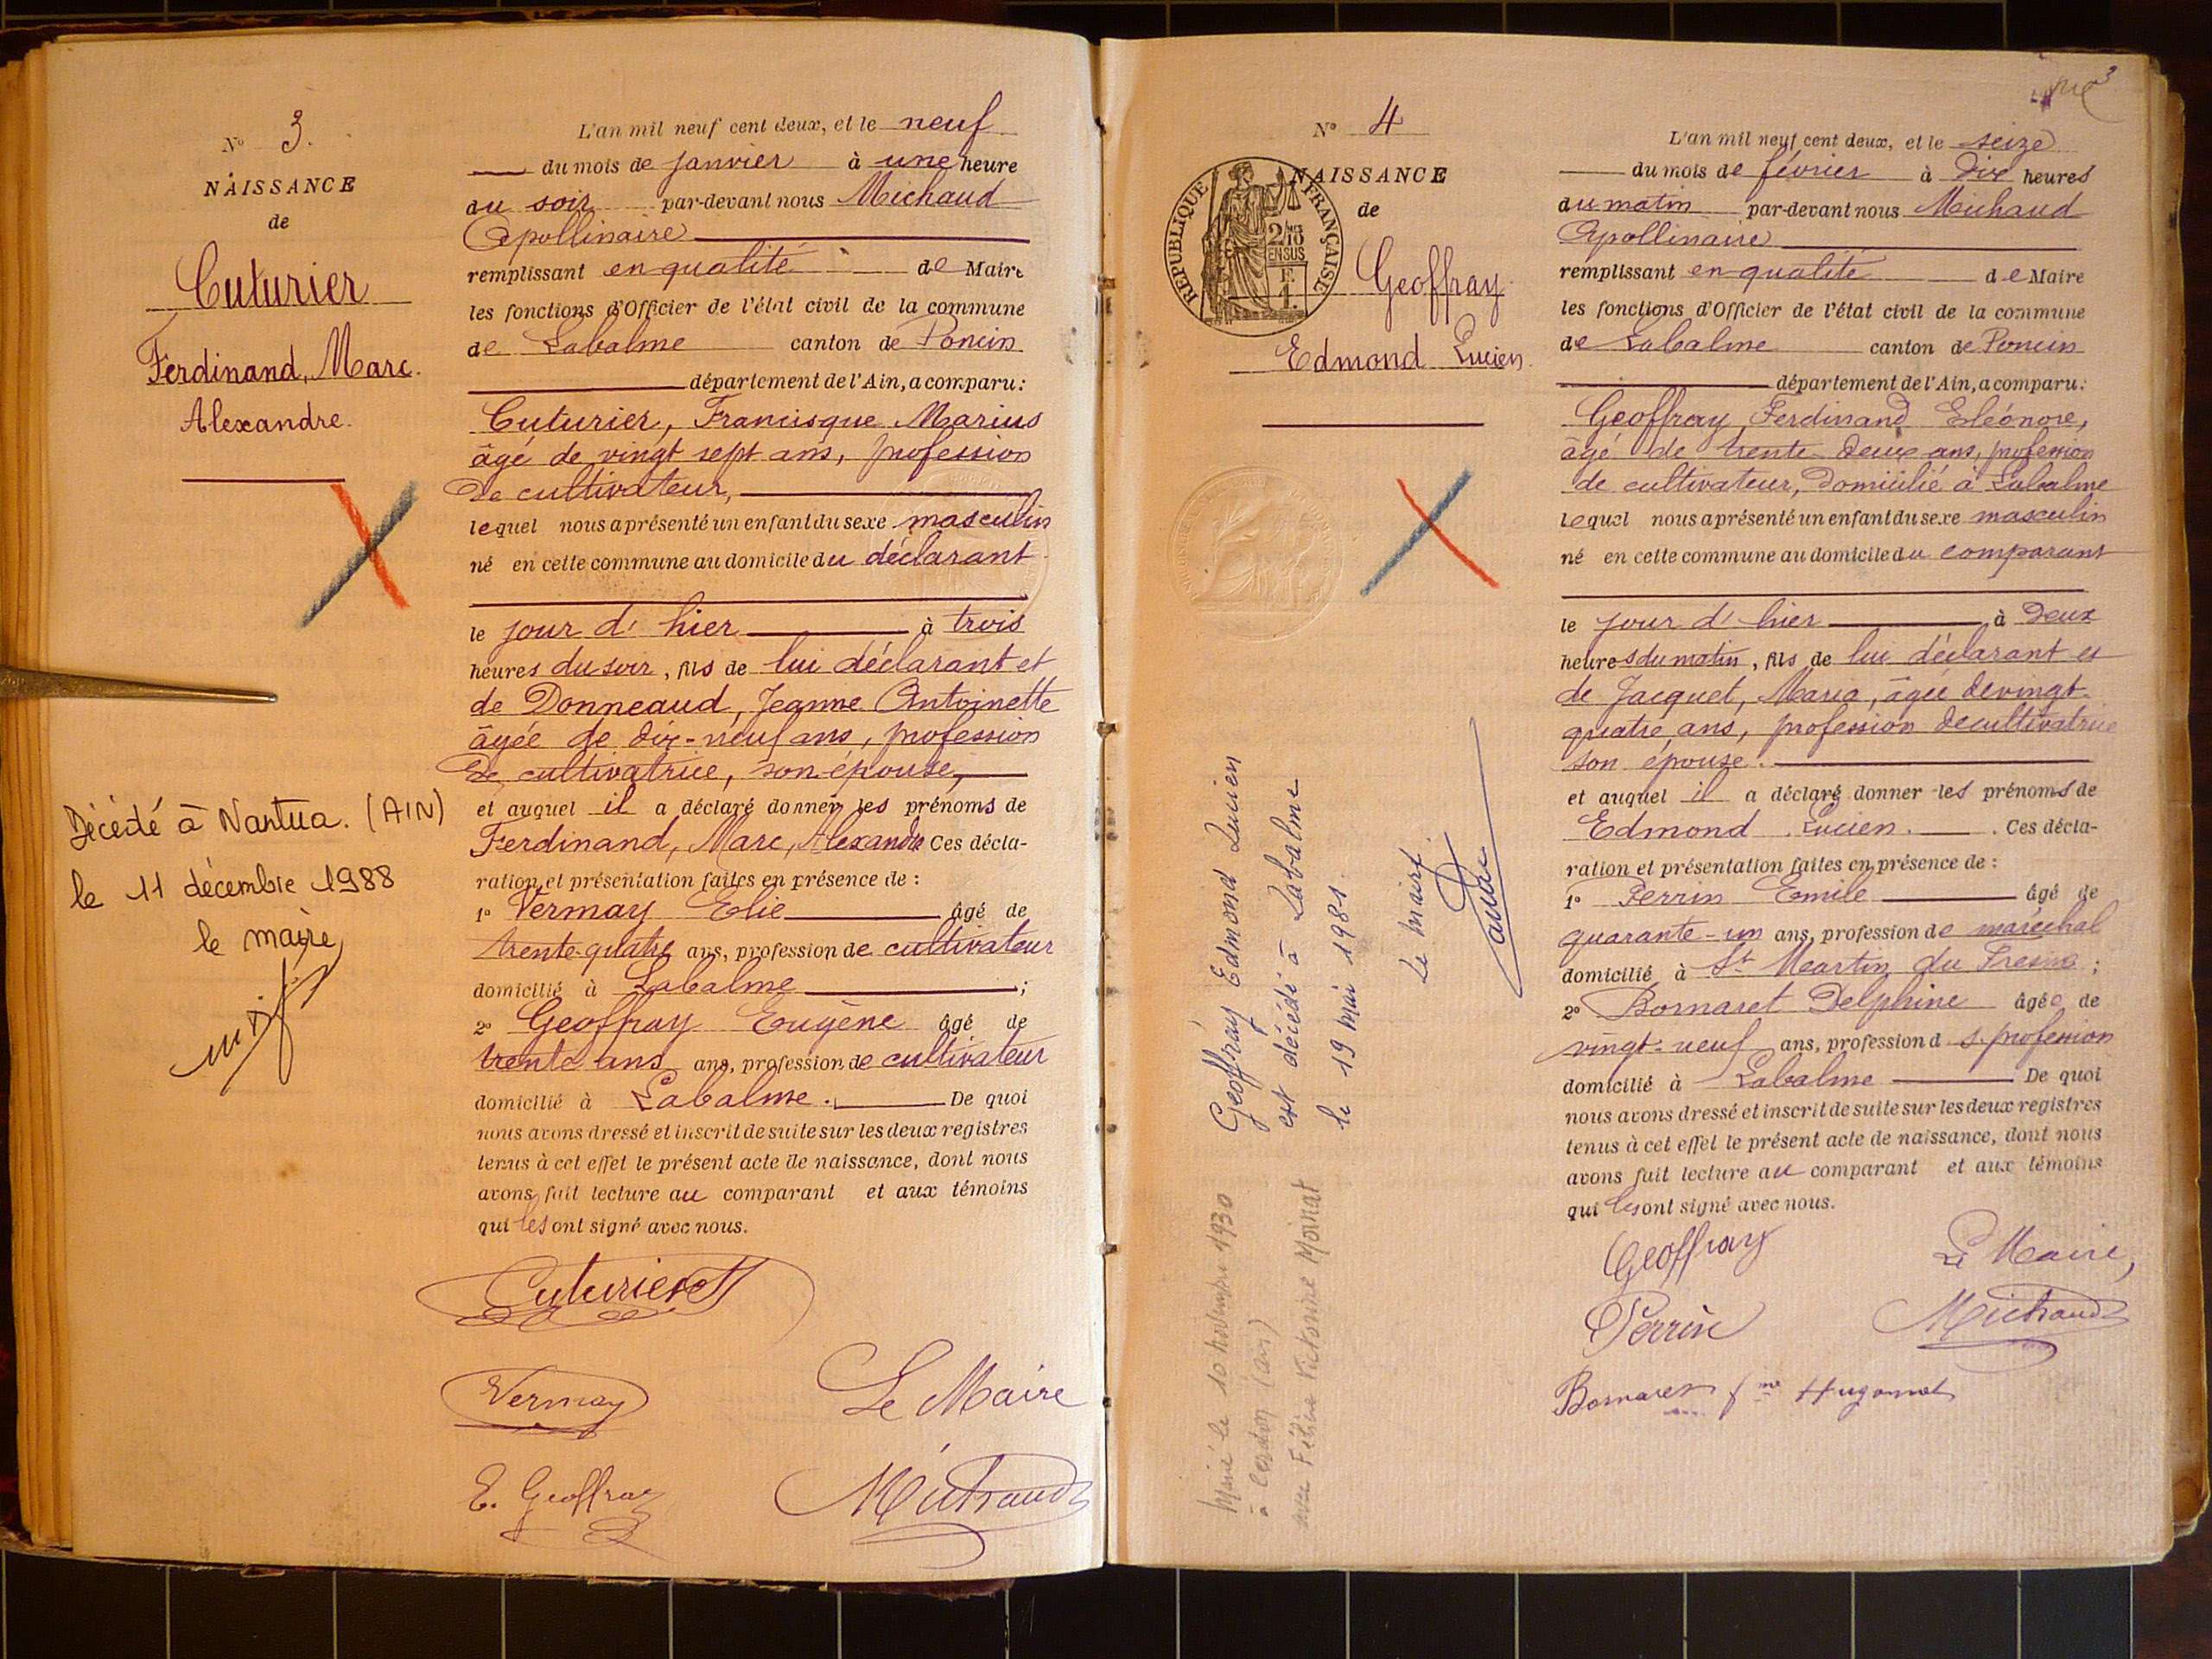 N° 3.
NAISSANCE
de
Cuturier
Ferdinand, Marc.
Alexandre.
Décédé à Nantua. (AIN)
le 11 décembre 1988
le maire,
L'an mil neuf cent deux, et le neuf
du mois de janvier à une heure
du soir par-devant nous Michaud
Apollinaire
remplissant en qualité de Maire
les fonctions d'Officier de l'état civil de la commune
de Labalme canton de Poncin
département de l'Ain, a comparu:
Cuturier, Francisque Marius
âgé de vingt sept ans, profession
de cultivateur,
lequel nous a présenté un enfant du sexe masculin
né en cette commune au domicile du déclarant
le jour d'hier à trois
heures du soir, fils de lui déclarant et
de Donneaud, Jeanne Antoinette
âgée de dix-neuf ans, profession
de cultivatrice, son épouse,
et auquel il a déclaré donner les prénoms de
Ferdinand, Marc, Alexandre Ces décla-
ration et présentation faites en présence de :
1° Vermay Elie âgé de
trente-quatre ans, profession de cultivateur
domicilié à Labalme ;
2° Geoffray Eugène âgé de
trente ans ans, profession de cultivateur
domicilié à Labalme. De quoi
nous avons dressé et inscrit de suite sur les deux registres
tenus à cet effet le présent acte de naissance, dont nous
avons fait lecture au comparant et aux témoins
qui les ont signé avec nous.
Cuturier
Vermay
Le Maire
E. Geoffray
Michaud
N° 4
NAISSANCE
de
RÉPUBLIQUE FRANÇAISE
2/10
EN SUS
F.
1.
Geoffray
Edmond Lucien
Geoffray Edmond Lucien
est décédé à Labalme
le 19 mai 1981.
Le maire.
Marié le 10 novembre 1930
à Cerdon (Ain)
avec Félicie Victorine Moinat
3
L'an mil neuf cent deux, et le seize
du mois de février à dix heures
du matin par-devant nous Michaud
Apollinaire
remplissant en qualité de Maire
les fonctions d'Officier de l'état civil de la commune
de Labalme canton de Poncin
département de l'Ain, a comparu:
Geoffray Ferdinand Eléonore,
âgé de trente-deux ans, profession
de cultivateur, domicilié à Labalme
lequel nous a présenté un enfant du sexe masculin
né en cette commune au domicile du comparant
le jour d'hier à deux
heures du matin, fils de lui déclarant et
de Jacquet, Maria, âgée de vingt-
quatre ans, profession de cultivatrice
son épouse.
et auquel il a déclaré donner les prénoms de
Edmond Lucien. . Ces décla-
ration et présentation faites en présence de :
1° Perrin Emile âgé de
quarante-un ans, profession de maréchal
domicilié à St Martin du Fresne ;
2° Bornaret Delphine âgée de
vingt-neuf ans, profession d s. profession
domicilié à Labalme De quoi
nous avons dressé et inscrit de suite sur les deux registres
tenus à cet effet le présent acte de naissance, dont nous
avons fait lecture au comparant et aux témoins
qui les ont signé avec nous.
Geoffray
Le Maire,
Perrin
Michaud
Bornaret fme Hugonnet